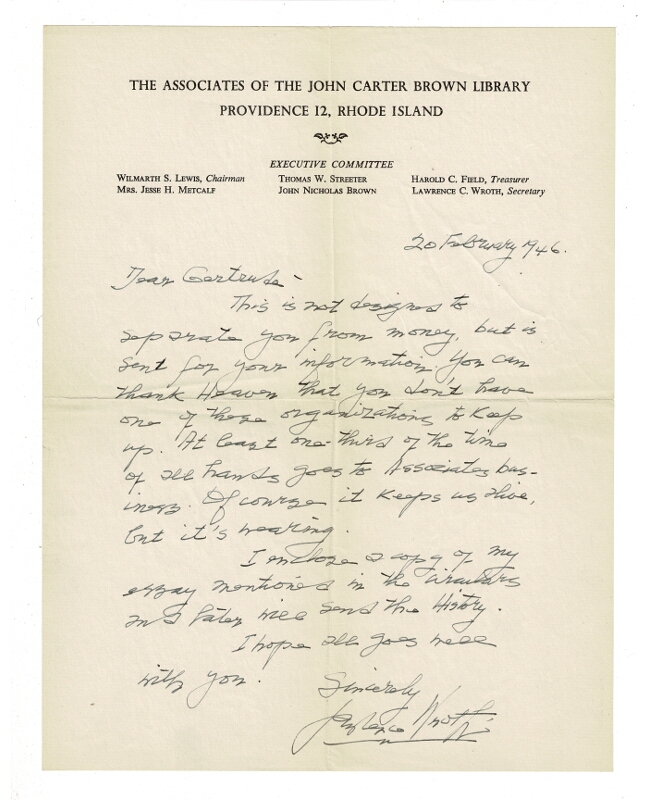 THE ASSOCIATES OF THE JOHN CARTER BROWN LIBRARY
PROVIDENCE 12, RHODE ISLAND
EXECUTIVE COMMITTEE
WILMARTH S. LEWIS, Chairman THOMAS W. STREETER HAROLD C. FIELD, Treasurer
MRS. JESSE H. METCALF JOHN NICHOLAS BROWN LAWRENCE C. WROTH, Secretary
20 February 1946.
Dear Gertrude -
This is not designed to
separate you from money, but is
sent for your information. You can
thank Heaven that you don't have
one of these organizations to keep
up. At least one-third of the time
of all hands goes to Associates bus-
iness. Of course it keeps us alive,
but it's wearing.
I enclose a copy of my
essay mentioned in the circulars
and later will send the History.
I hope all goes well
with you.
Sincerely
Lawrence Wroth